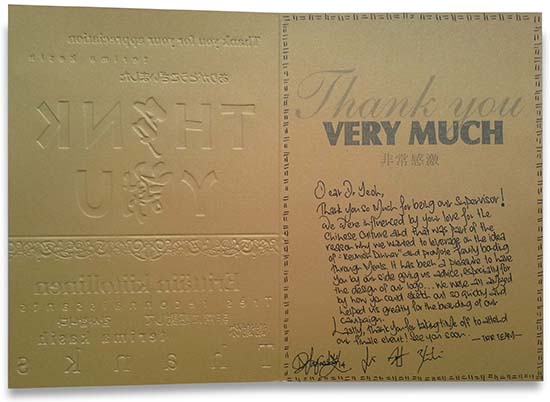 Thank you for your appreciation
terima kasih
ありがとうございました
terima kasih
Thanks
Thank you
VERY MUCH
非常感激
Dear Dr Yeoh,
Thank you so much for being our supervisor!
We were influenced by your love for the
Chinese Culture and that was part of the
reason why we wanted to leverage on the idea
of "Reunion Dinner" and promote family bonding
through meals. It has been a pleasure to have
you by our side giving us advice, especially for
the design of our logo... We were all amazed
by how you could sketch out so quickly and
helped us greatly for the branding of our
campaign.
Lastly, thank you for taking time off to attend
our finale event! See you soon.